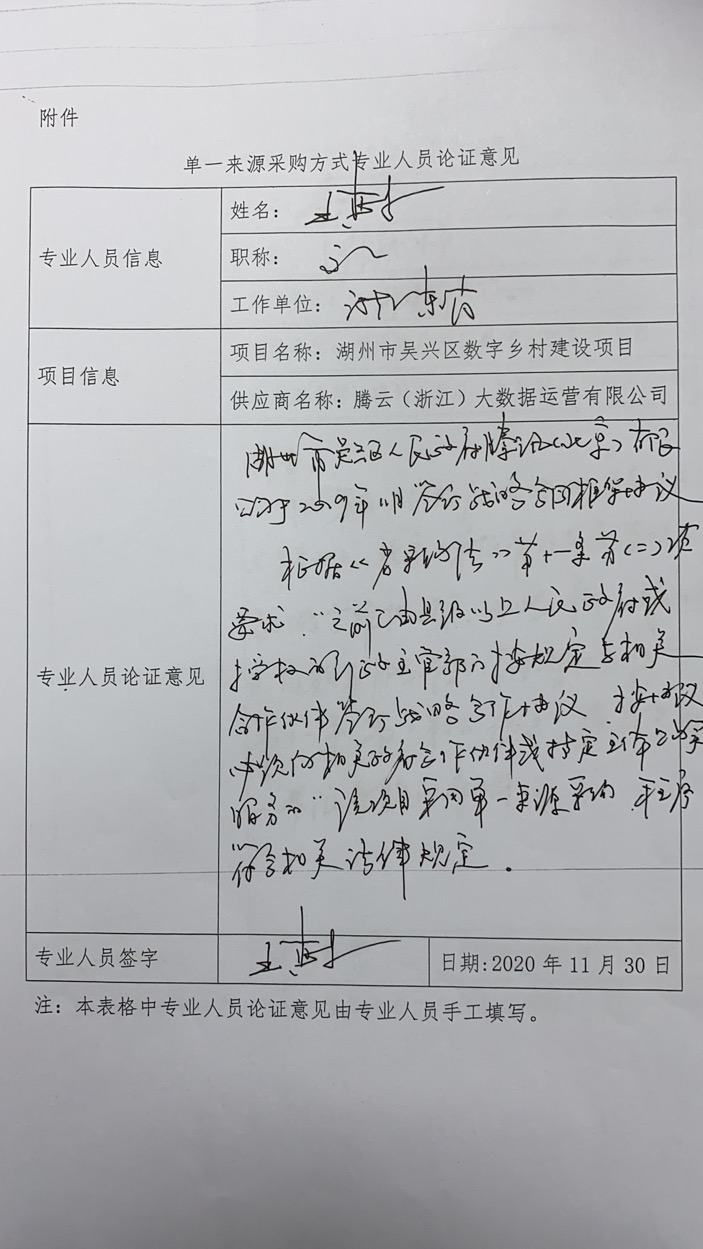 附件
单一来源采购方式专业人员论证意见
专业人员信息
姓名：
职称：
工作单位：
项目信息
项目名称：湖州市吴兴区数字乡村建设项目
供应商名称：腾云（浙江）大数据运营有限公司
专业人员论证意见
湖州市吴兴区人民政府腾讯（北京）有限
公司于2019年11月签订战略合同框架协议
根据《省采购法》第十一条第（二）项
要求，“之前已由县级以上人民政府或
授权的行政主管部门按规定与相关
合作伙伴签订战略合作协议，按协议
必须向相关政府合作伙伴或特定主体
服务的”该项目采用单一来源采购，程序
符合相关法律规定。
专业人员签字
日期:2020年11月30日
注：本表格中专业人员论证意见由专业人员手工填写。